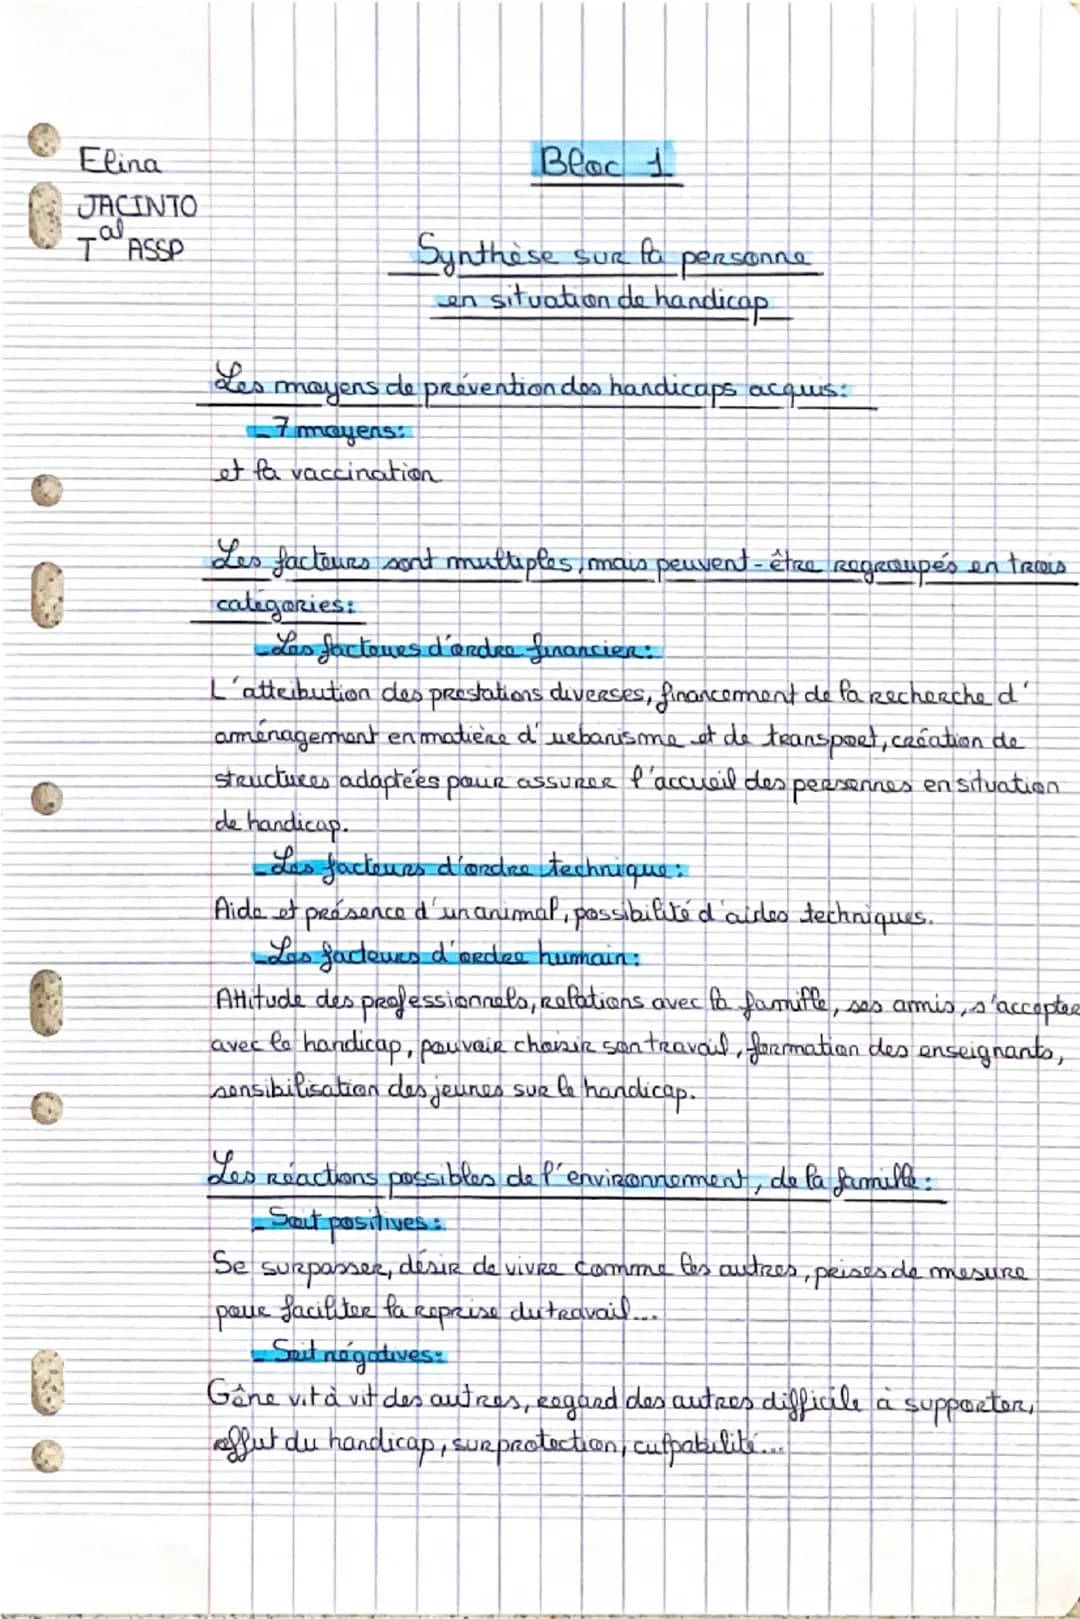 Elina
JACINTO
Tal ASSP
Bloc 1
Synthèse sur la personne
en situation de handicap
Les moyens de prévention des handicaps acquis:
- 7 moyens:
et la vaccination
Les facteurs sont multiples, mais peuvent-être regroupés en trois
catégories:
- Les facteurs d'ordre financier:
L'attribution des prestations diverses, financement de la recherche d'
aménagement en matière d'urbanisme et de transport, création de
structures adaptées pour assurer l'accueil des personnes en situation
de handicap.
- Les facteurs d'ordre technique:
Aide et présence d'un animal, possibilité d'aides techniques.
- Les facteurs d'ordre humain:
Attitude des professionnels, relations avec la famille, ses amis, s'accepter
avec le handicap, pouvoir choisir son travail, formation des enseignants,
sensibilisation des jeunes sur le handicap.
Les réactions possibles de l'environnement, de la famille:
- Soit positives:
Se surpasser, désir de vivre comme les autres, prises de mesure
pour faciliter la reprise du travail...
- Soit négatives:
Gêne vit à vit des autres, regard des autres difficile à supporter,
reffut du handicap, surprotection, culpabilité...